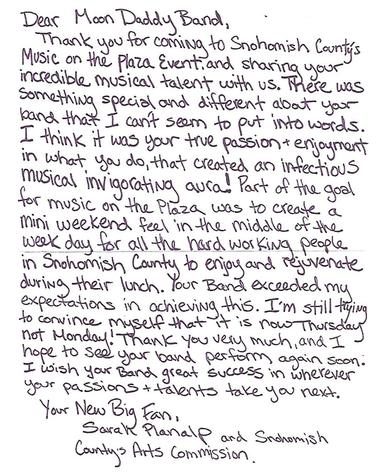 Dear Moon Daddy Band,
Thank you for coming to Snohomish County's
Music on the Plaza Event and sharing your
incredible musical talent with us. There was
something special and different about your
band that I can't seem to put into words.
I think it was your true passion + enjoyment
in what you do, that created an infectious
musical invigorating aura! Part of the goal
for music on the Plaza was to create a
mini weekend feel in the middle of the
week day for all the hard working people
in Snohomish County to enjoy and rejuvenate
during their lunch. Your Band exceeded my
expectations in achieving this. I'm still trying
to convince myself that it is now Thursday
not Monday! Thank you very much, and I
hope to see your band perform again soon.
I wish your Band great success in wherever
your passions + talents take you next.
Your New Big Fan,
Sarah Planalp and Snohomish
County's Arts Commission.